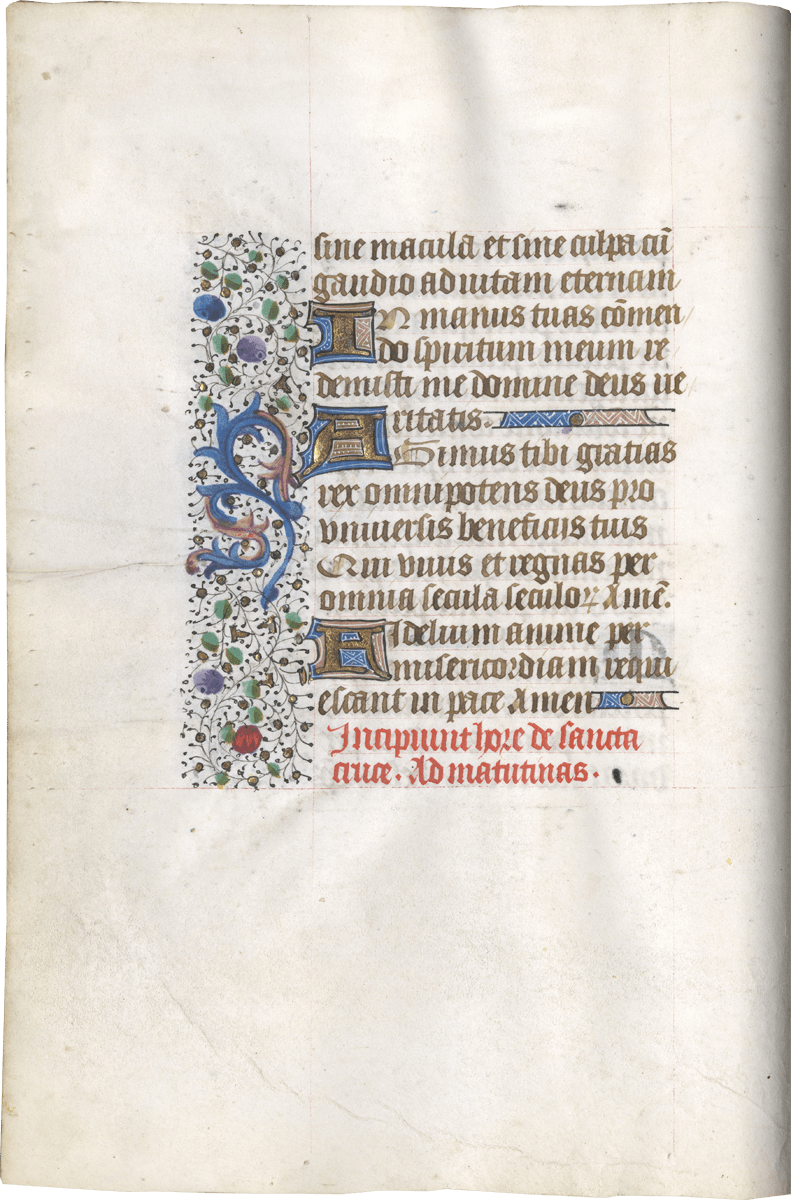 sine macula et sine culpa cū
gaudio ad uitam eternam
IN manus tuas cōmen
do spiritum meum re
demisti me domine deus ue
ritatis.
AGimus tibi gratias
rex omnipotens deus pro
vniuersis beneficiis tuis
Qui viuis et regnas per
omnia secula seculoꝝ Amē.
Fidelium anime per
misericordiam requi
escant in pace Amen
Incipiunt hore de sancta
cruce. Ad matutinas.